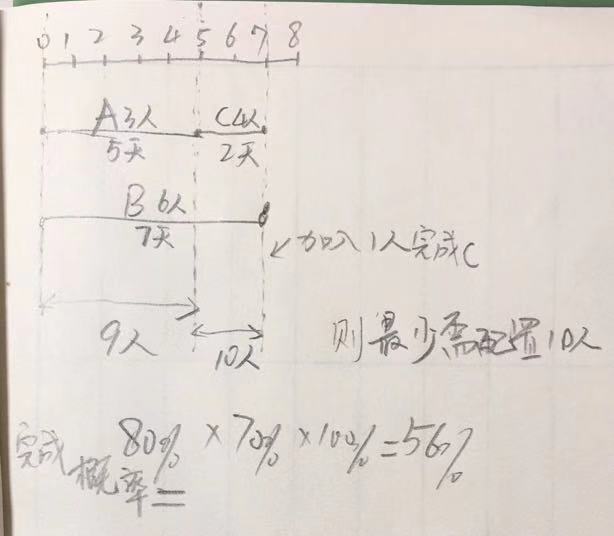 0 1 2 3 4 5 6 7 8
A 3人 C4人
5天 2天
B 6人
7天
↙加入1人完成C
9人 10人
则最少需配置10人
完成概率= 80% × 70% × 100% = 56%